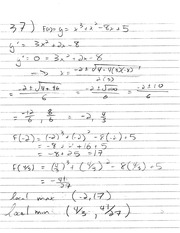 37) F(x)= y = x³+x²-8x+5
y' = 3x²+2x-8
y' = 0 = 3x²+2x-8
→ x = (-2±√(4-4(3)(-8)))/(2(3))
(-2±√(4+96))/6 = (-2±√100)/6 = (-2±10)/6
-12/6, 8/6 = -2, 4/3
F(-2) = (-2)³+(-2)²-8(-2)+5
= -8+4+16+5
= -8+25 = 17
F(4/3) = (4/3)³+(4/3)²-8(4/3)+5
= -41/27
local max (-2,17)
local min (4/3, -41/27)